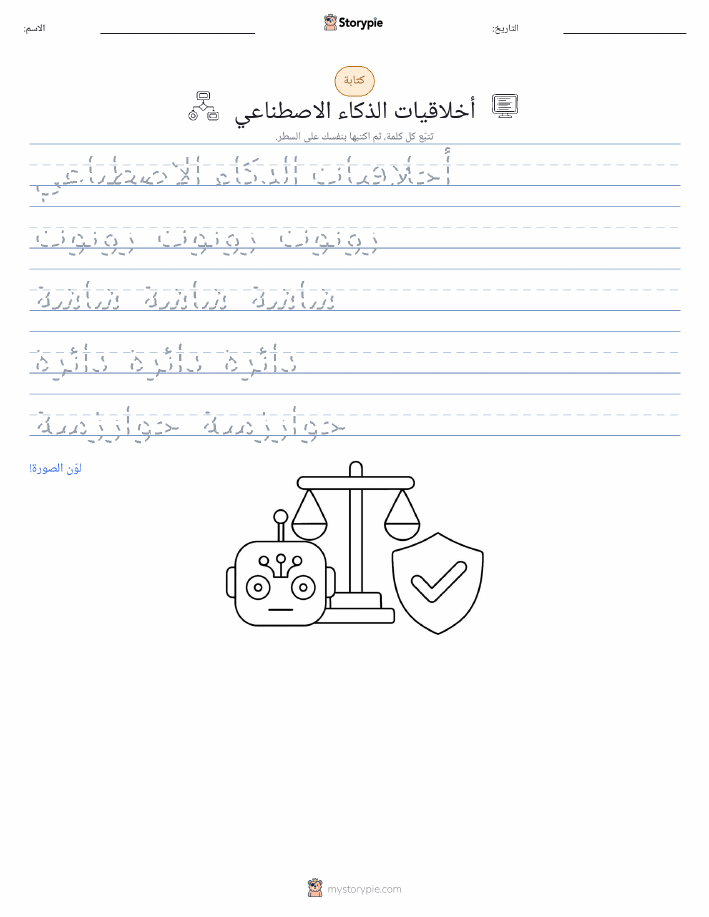 Storypie
الاسم:
التاريخ:
كتابة
أخلاقيات الذكاء الاصطناعي
تتبّع كل كلمة، ثم اكتبها بنفسك على السطر.
أخلاقيات الذكاء الاصطناعي
روبوت روبوت روبوت
شاشة شاشة شاشة
دائرة دائرة دائرة
خوارزمية خوارزمية
لوّن الصورة!
mystorypie.com